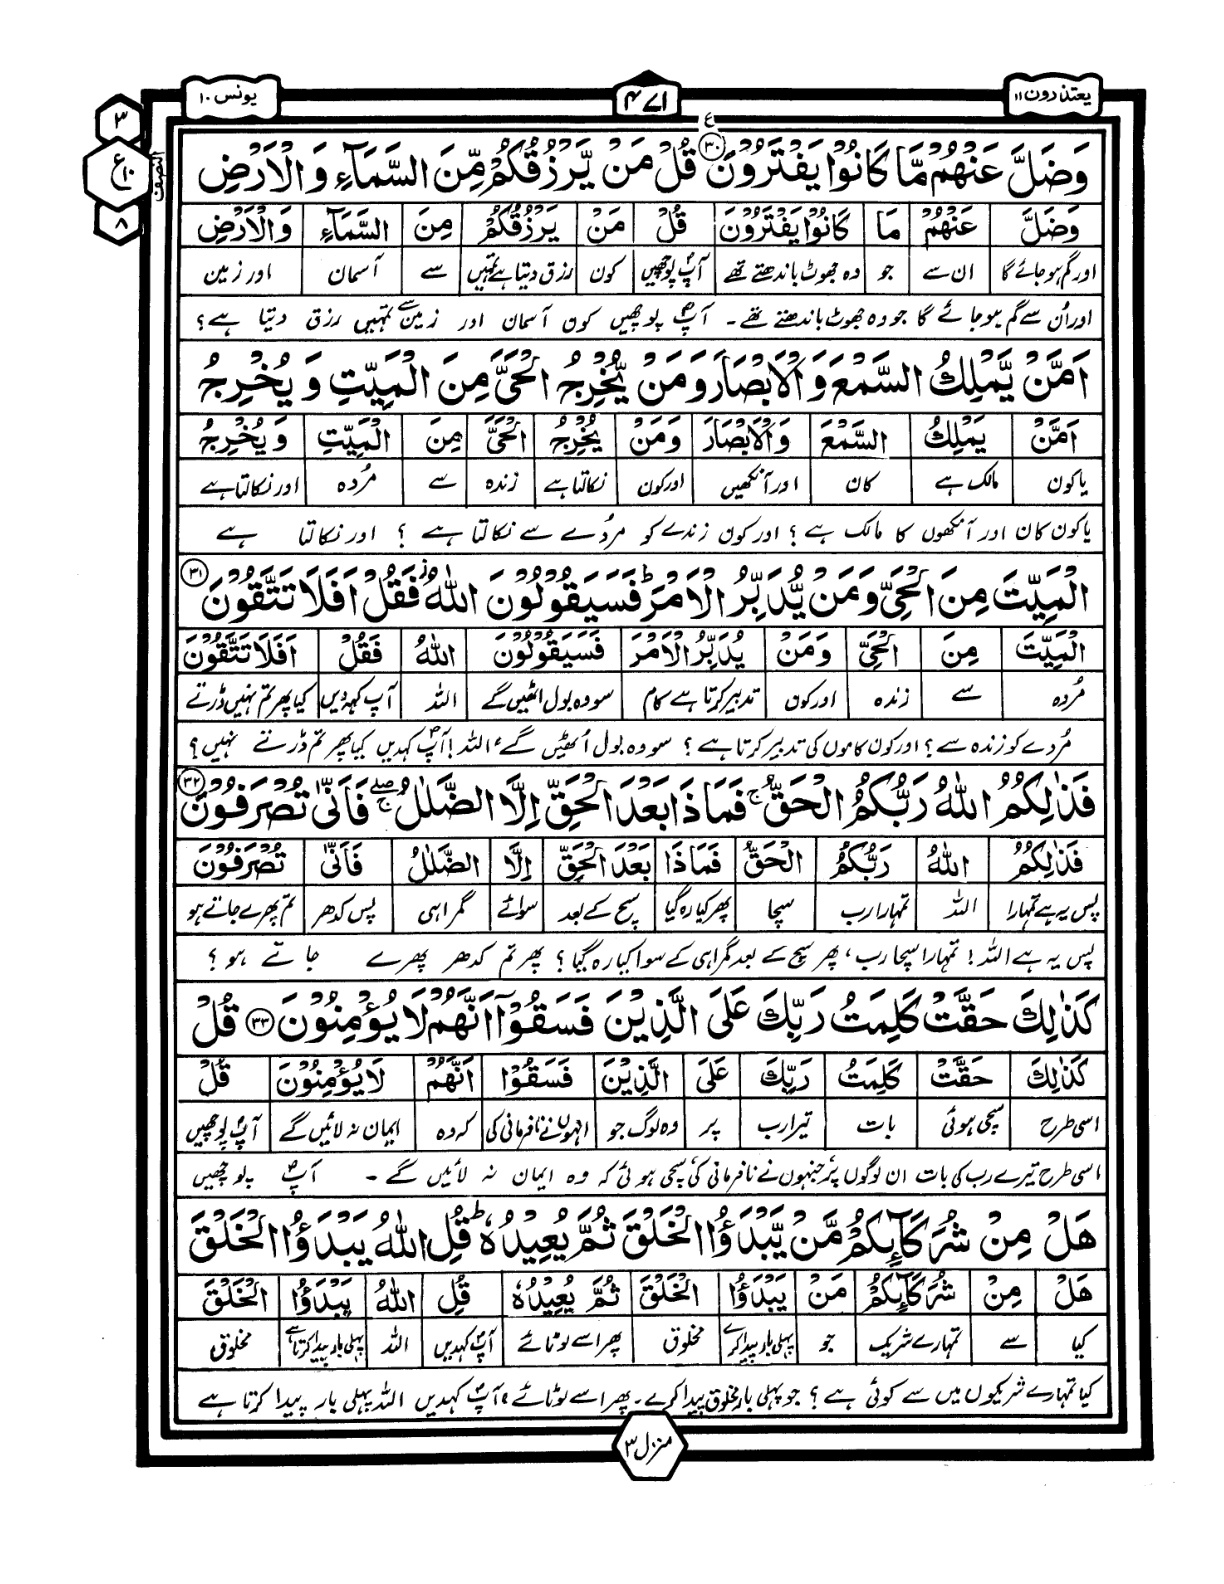 یعتذرون ۱۱
۴۷۱
یونس ۱۰
۳
ع ۱۰
۸
النصف
وَضَلَّ عَنْهُمْ مَّا كَانُوْا يَفْتَرُوْنَ ۳۰ ع قُلْ مَنْ يَّرْزُقُكُمْ مِّنَ السَّمَآءِ وَالْاَرْضِ
وَضَلَّ عَنْهُمْ مَا كَانُوْا يَفْتَرُوْنَ قُلْ مَنْ يَرْزُقُكُمْ مِنَ السَّمَآءِ وَالْاَرْضِ
اور گم ہو جائے گا ان سے جو وہ جھوٹ باندھتے تھے آپؐ پوچھیں کون رزق دیتا ہے تمہیں سے آسمان اور زمین
اور اُن سے گم ہو جائے گا جو وہ جھوٹ باندھتے تھے۔ آپؐ پوچھیں کون آسمان اور زمین سے تمہیں رزق دیتا ہے؟
اَمَّنْ يَّمْلِكُ السَّمْعَ وَالْاَبْصَارَ وَمَنْ يُّخْرِجُ الْحَيَّ مِنَ الْمَيِّتِ وَيُخْرِجُ
اَمَّنْ يَمْلِكُ السَّمْعَ وَالْاَبْصَارَ وَمَنْ يُخْرِجُ الْحَيَّ مِنَ الْمَيِّتِ وَيُخْرِجُ
یا کون مالک ہے کان اور آنکھیں اور کون نکالتا ہے زندہ سے مُردہ اور نکالتا ہے
یا کون کان اور آنکھوں کا مالک ہے؟ اور کون زندے کو مردے سے نکالتا ہے؟ اور نکالتا ہے
الْمَيِّتَ مِنَ الْحَيِّ وَمَنْ يُّدَبِّرُ الْاَمْرَ ط فَسَيَقُوْلُوْنَ اللّٰهُ ز فَقُلْ اَفَلَا تَتَّقُوْنَ ۳۱
الْمَيِّتَ مِنَ الْحَيِّ وَمَنْ يُدَبِّرُ الْاَمْرَ فَسَيَقُوْلُوْنَ اللّٰهُ فَقُلْ اَفَلَا تَتَّقُوْنَ
مُردہ سے زندہ اور کون تدبیر کرتا ہے کام سو وہ بول اٹھیں گے اللہ آپ کہہ دیں کیا پھر تم نہیں ڈرتے
مُردے کو زندہ سے؟ اور کون کاموں کی تدبیر کرتا ہے؟ سو وہ بول اُٹھیں گے، اللہ! آپؐ کہدیں کیا پھر تم ڈرتے نہیں؟
فَذٰلِكُمُ اللّٰهُ رَبُّكُمُ الْحَقُّ ج فَمَاذَا بَعْدَ الْحَقِّ اِلَّا الضَّلٰلُ ج صلے فَاَنّٰى تُصْرَفُوْنَ ۳۲
فَذٰلِكُمُ اللّٰهُ رَبُّكُمُ الْحَقُّ فَمَاذَا بَعْدَ الْحَقِّ اِلَّا الضَّلٰلُ فَاَنّٰى تُصْرَفُوْنَ
پس یہ ہے تمہارا اللہ تمہارا رب سچا پھر کیا رہ گیا سچ کے بعد سوائے گمراہی پس کدھر تم پھرے جاتے ہو
پس یہ ہے اللہ! تمہارا سچا رب، پھر سچ کے بعد گمراہی کے سوا کیا رہ گیا؟ پھر تم کدھر پھرے جاتے ہو؟
كَذٰلِكَ حَقَّتْ كَلِمَتُ رَبِّكَ عَلَى الَّذِيْنَ فَسَقُوْٓا اَنَّهُمْ لَا يُؤْمِنُوْنَ ۳۳ قُلْ
كَذٰلِكَ حَقَّتْ كَلِمَتُ رَبِّكَ عَلَى الَّذِيْنَ فَسَقُوْا اَنَّهُمْ لَا يُؤْمِنُوْنَ قُلْ
اسی طرح سچی ہوئی بات تیرا رب پر وہ لوگ جو انہوں نے نافرمانی کی کہ وہ ایمان نہ لائیں گے آپؐ پوچھیں
اسی طرح تیرے رب کی بات ان لوگوں پر جنہوں نے نافرمانی کی سچی ہوئی کہ وہ ایمان نہ لائیں گے۔ آپؐ پوچھیں
هَلْ مِنْ شُرَكَآئِكُمْ مَّنْ يَّبْدَؤُا الْخَلْقَ ثُمَّ يُعِيْدُهٗ ط قُلِ اللّٰهُ يَبْدَؤُا الْخَلْقَ
هَلْ مِنْ شُرَكَآئِكُمْ مَنْ يَبْدَؤُا الْخَلْقَ ثُمَّ يُعِيْدُهٗ قُلِ اللّٰهُ يَبْدَؤُا الْخَلْقَ
کیا سے تمہارے شریک جو پہلی بار پیدا کرے مخلوق پھر اسے لوٹائے آپؐ کہدیں اللہ پہلی بار پیدا کرتا ہے مخلوق
کیا تمہارے شریکوں میں سے کوئی ہے؟ جو پہلی بار مخلوق پیدا کرے۔ پھر اسے لوٹائے، آپؐ کہدیں اللہ پہلی بار پیدا کرتا ہے
منزل ۳